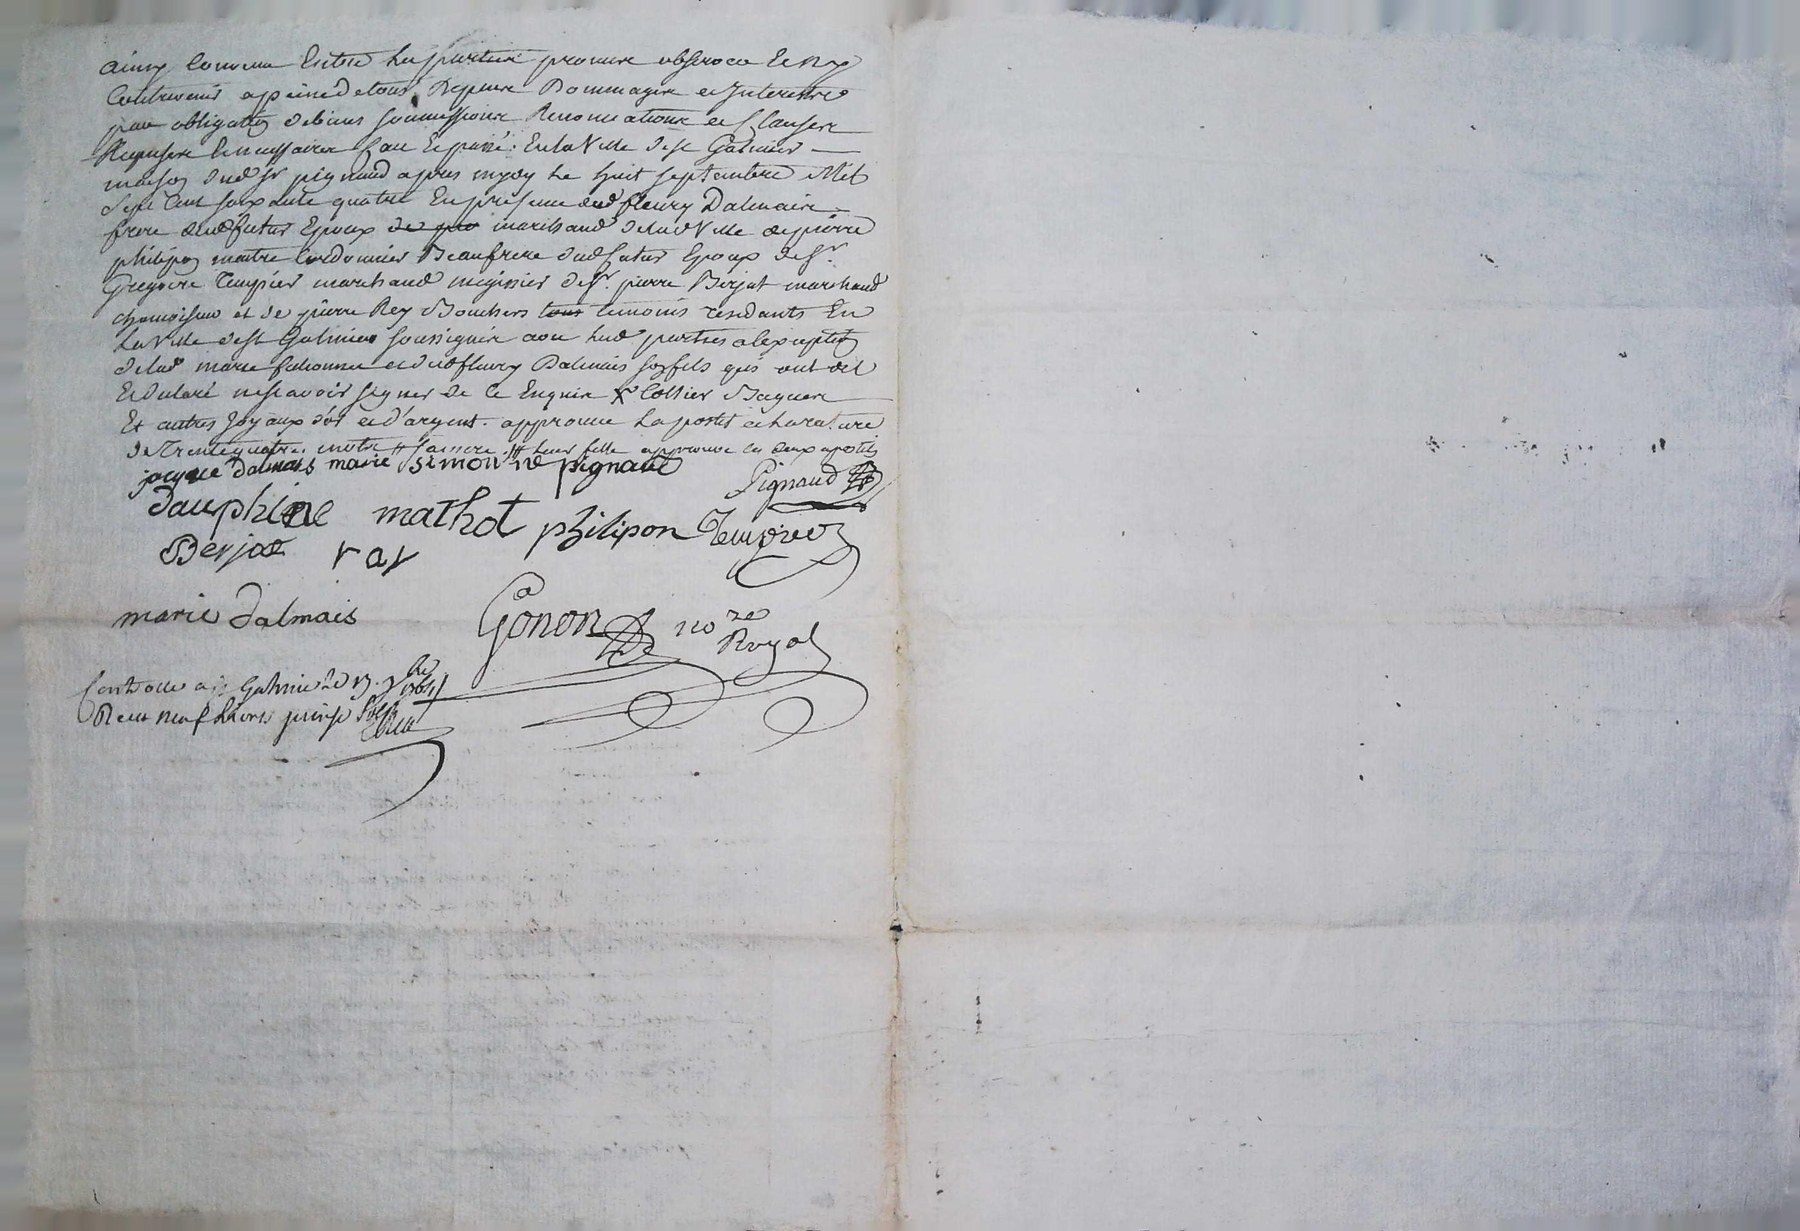 ainsy convenu Entre les parties promis observer Et ny
Contrevenir a peine de tous Depens Dommages et Interestz
par obligation de biens soumissions Renonciations et Clauses
Requises Et necessaires fait Et passé. En la Ville de St Galmier
maison dud Sr pignaud apres midy Le huit septembre Mil
Sept Cent soixante quatre En presence dud fleury Dalmais
frere dud futur Epoux marchand de lad Ville de pierre
philipon maitre Cordonnier Beaufrere dud futur Epoux de Sr
Gregoire Tempier marchand megissier de Sr pierre Berjat marchand
chamoiseur et de pierre Rey Boucher temoins residants En
La Ville de St Galmier soussignés avec lesd parties a lexception
de lad marie et dud fleury Dalmais son fils qui ont dit
Et declaré ne scavoir signer de ce Enquis Collier Bagues
Et autres Joyaux d'or et d'argent. approuvé La postil et la rature
de trente quatre leur fille approuvé les deux apostils
jacque dalmais marie simon pignaud
Pignaud
dauphine mathot philipon Tempier
Berjat ray
marie dalmais
Gonon nore
Royal
Controllé a St Galmier le 17 7bre 1764
Receu neuf livres